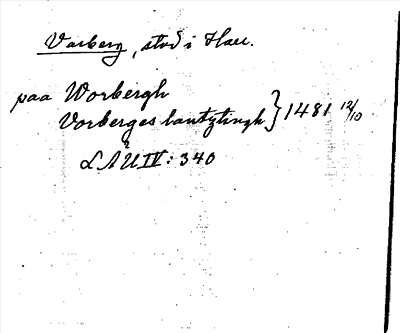 Varberg, stad i Hall.
paa Worbergh
Vorberges lantztingh } 1481 12/10
LÄU IV: 340